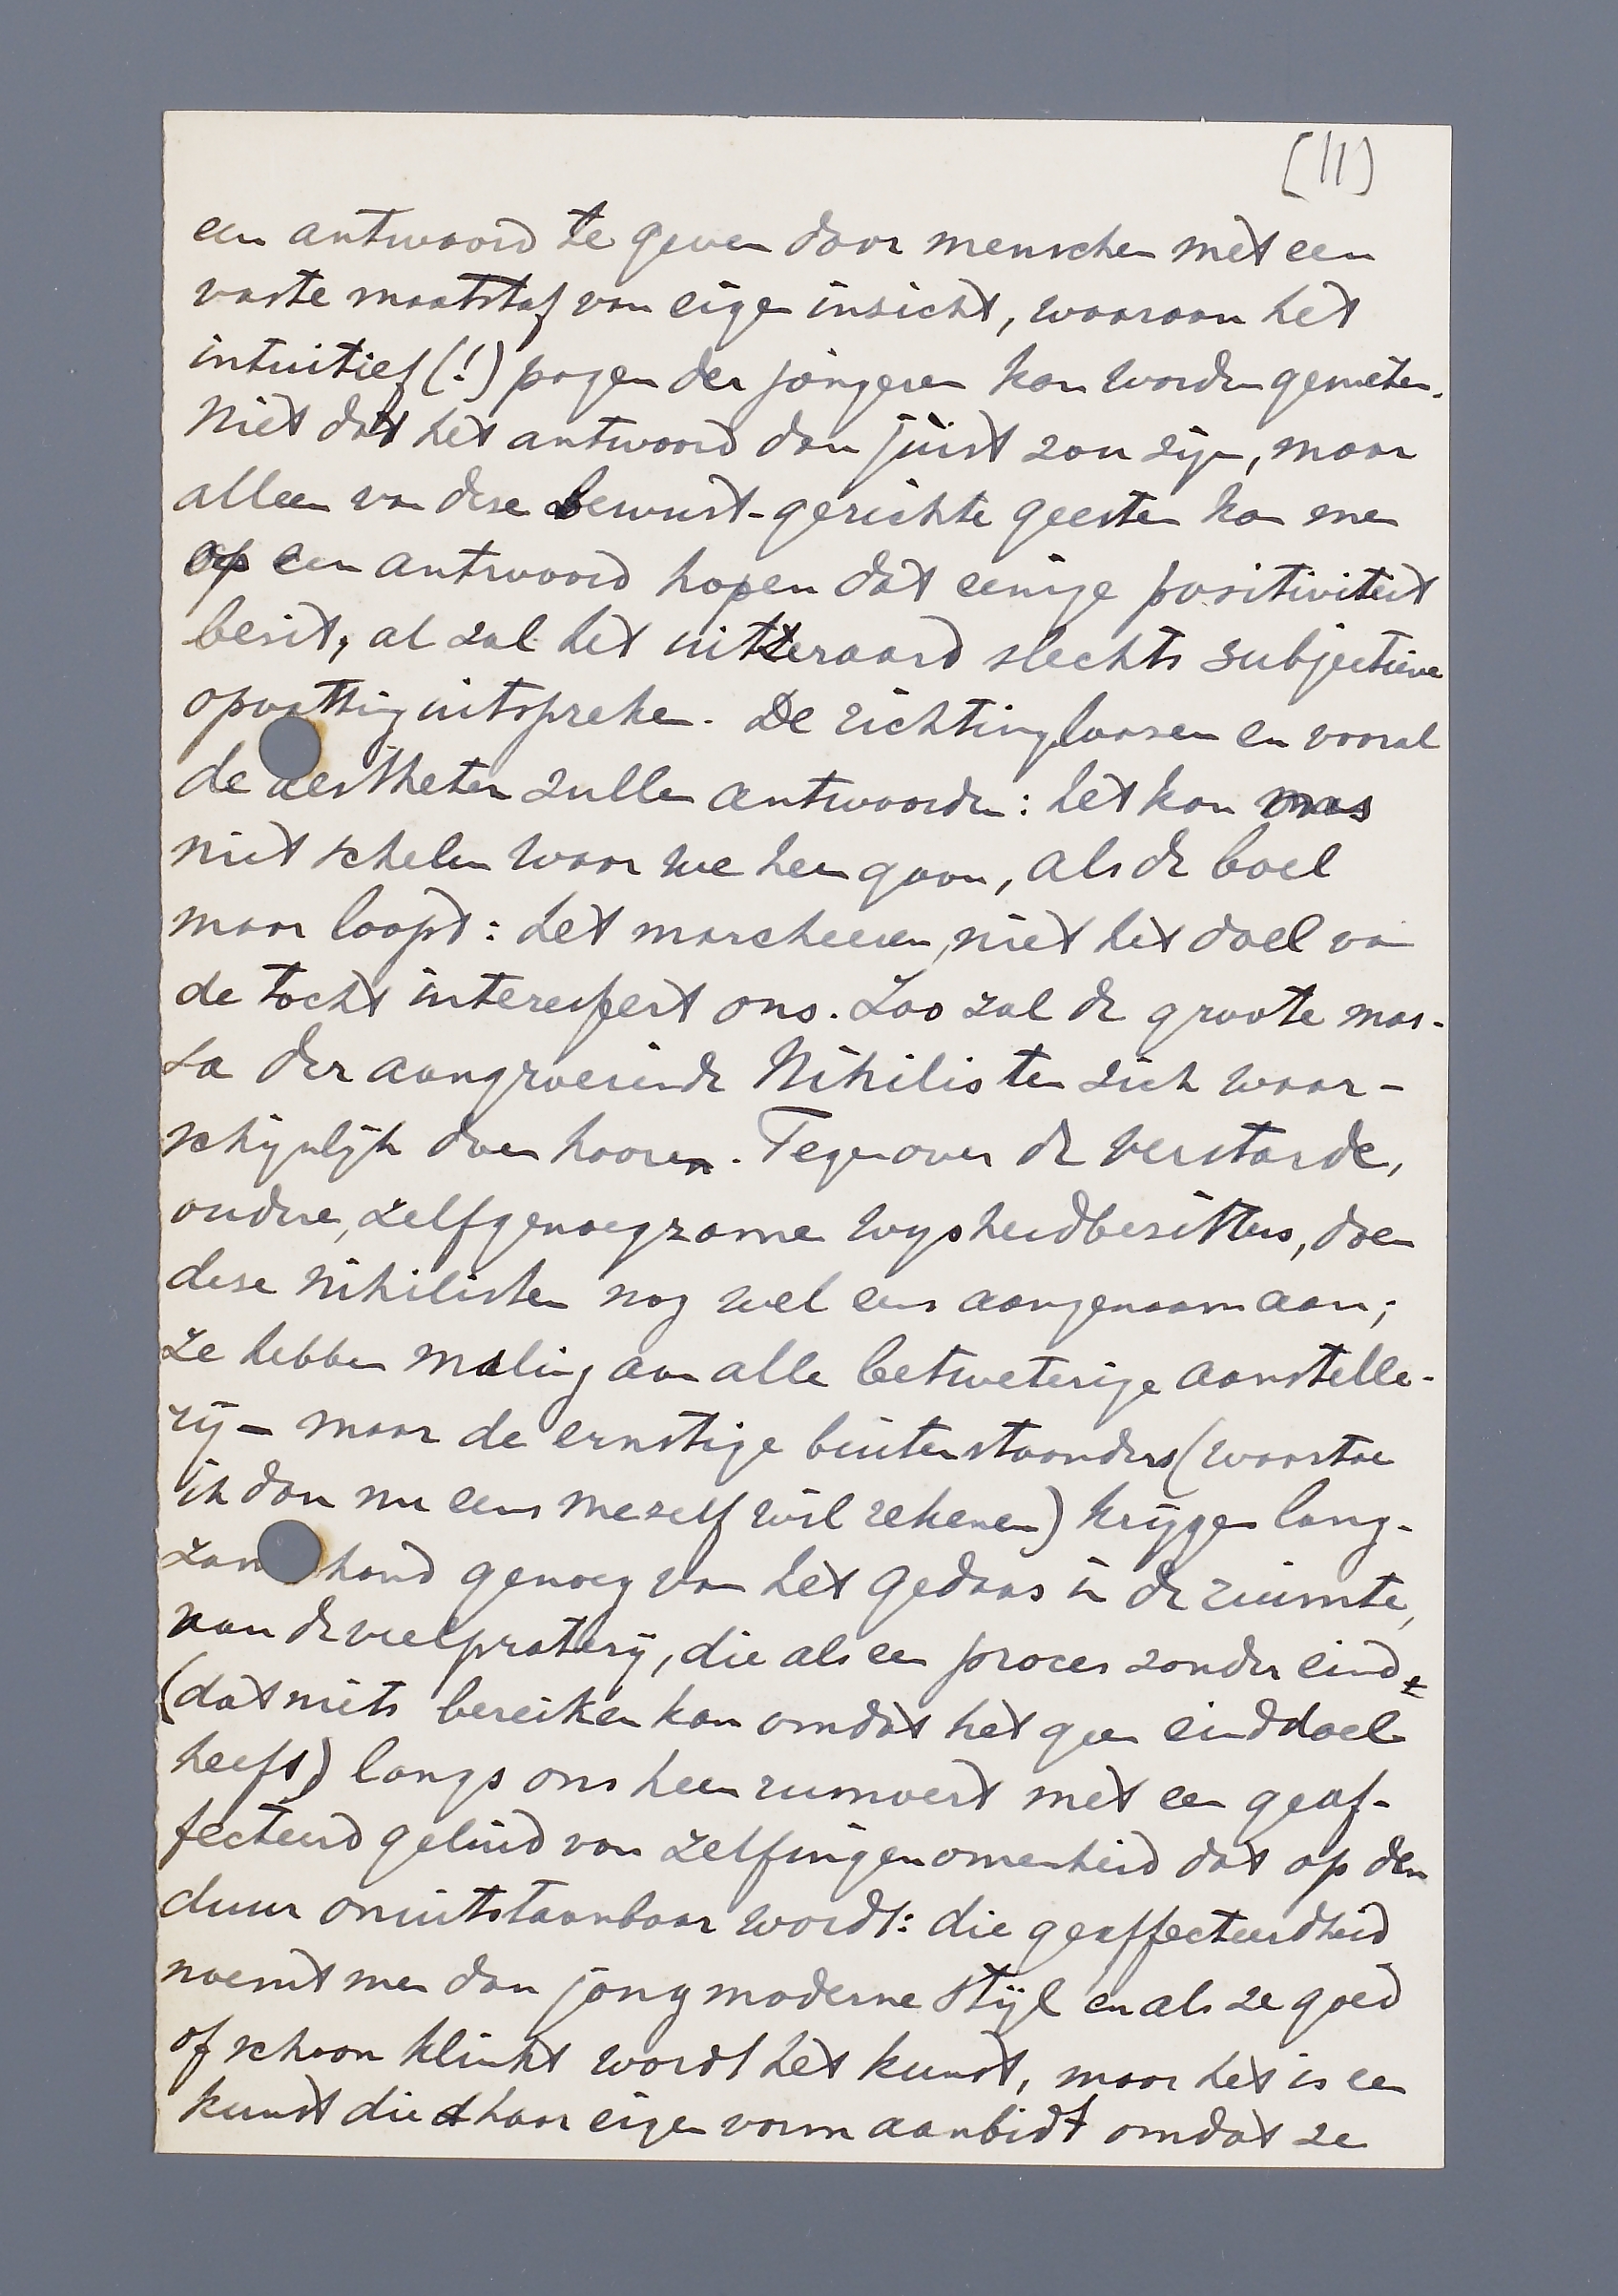 [11]
een antwoord te geven door menschen met een
vaste maatstaf van eigen inzicht, waaraan het
intuitief (!) pogen der jongeren kan worden gemeten.
Niet dat het antwoord dan juist zou zijn, maar
alleen van deze bewust-gerichte geesten kan men
op een antwoord hopen dat eenige positiviteit
bezit, al zal het uitteraard slechts subjectieve
opvatting uitspreken. De richtingloozen en vooral
de aestheten zullen antwoorden: het kan ons
niet schelen waar we heen gaan, als de boel
maar loopt: het marcheeren, niet het doel van
de tocht interesseert ons. Zoo zal de groote mas-
sa der aangroeiende Nihilisten zich waar-
schijnlijk doen hooren. Tegenover de verstarde,
oudere, zelfgenoegzame wijsheidbezitters, doen
deze nihilisten nog wel eens aangenaam aan;
ze hebben maling aan alle betweterige aanstelle-
rij - maar de ernstige buitenstaanders (waartoe
ik dan nu eens mezelf wil rekenen) krijgen lang-
zamerhand genoeg van het gedaas in de ruimte,
van de veelpraterij, die als een proces zonder einde
(dat niets bereiken kan omdat het geen einddoel
heeft) langs ons heen rumoert met een geaf-
fecteerd geluid van zelfingenomenheid dat op den
duur onuitstaanbaar wordt: die geaffecteerdheid
noemt men dan jong moderne stijl en als ze goed
of schoon klinkt wordt het kunst, maar het is een
kunst die haar eigen vorm aanbidt omdat ze